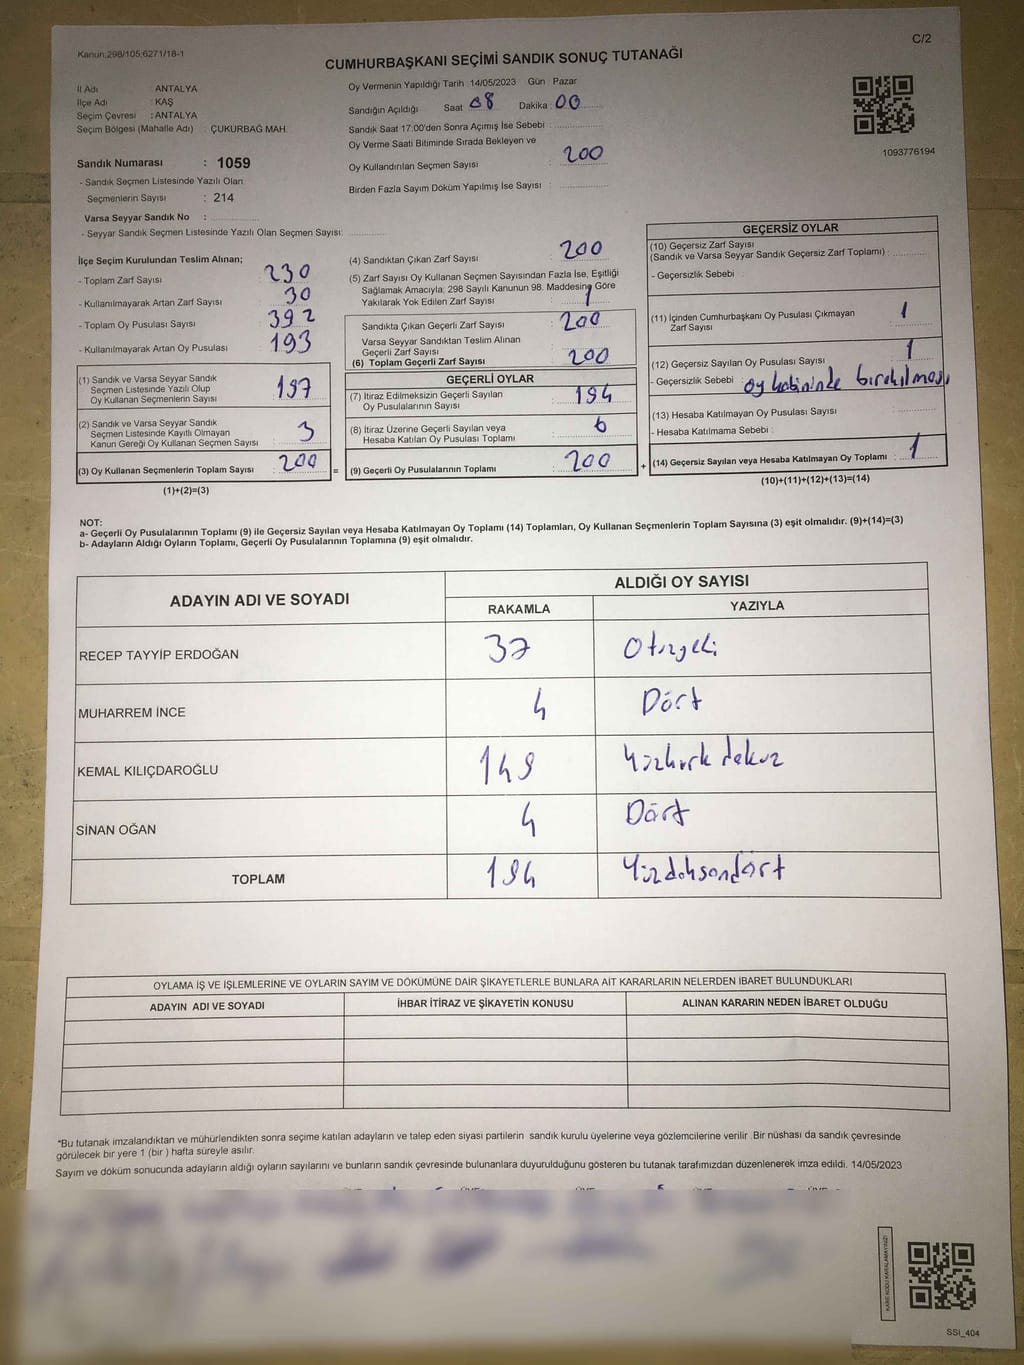 Kanun:298/105,6271/18-1
C/2
CUMHURBAŞKANI SEÇİMİ SANDIK SONUÇ TUTANAĞI
İl Adı : ANTALYA
İlçe Adı : KAŞ
Seçim Çevresi : ANTALYA
Seçim Bölgesi (Mahalle Adı) : ÇUKURBAĞ MAH.
Sandık Numarası : 1059
- Sandık Seçmen Listesinde Yazılı Olan
Seçmenlerin Sayısı : 214
Varsa Seyyar Sandık No :
- Seyyar Sandık Seçmen Listesinde Yazılı Olan Seçmen Sayısı:
Oy Vermenin Yapıldığı Tarih :14/05/2023 Gün : Pazar
Sandığın Açıldığı Saat 08 Dakika : 00
Sandık Saat 17:00'den Sonra Açımış İse Sebebi :
Oy Verme Saati Bitiminde Sırada Bekleyen ve
Oy Kullandırılan Seçmen Sayısı : 200
Birden Fazla Sayım Döküm Yapılmış İse Sayısı :
1093776194
İlçe Seçim Kurulundan Teslim Alınan;
- Toplam Zarf Sayısı : 230
- Kullanılmayarak Artan Zarf Sayısı : 30
- Toplam Oy Pusulası Sayısı : 392
- Kullanılmayarak Artan Oy Pusulası : 193
(1) Sandık ve Varsa Seyyar Sandık
Seçmen Listesinde Yazılı Olup
Oy Kullanan Seçmenlerin Sayısı : 197
(2) Sandık ve Varsa Seyyar Sandık
Seçmen Listesinde Kayıtlı Olmayan
Kanun Gereği Oy Kullanan Seçmen Sayısı : 3
(3) Oy Kullanan Seçmenlerin Toplam Sayısı : 200
(1)+(2)=(3)
(4) Sandıktan Çıkan Zarf Sayısı : 200
(5) Zarf Sayısı Oy Kullanan Seçmen Sayısından Fazla İse, Eşitliği
Sağlamak Amacıyla; 298 Sayılı Kanunun 98. Maddesine Göre
Yakılarak Yok Edilen Zarf Sayısı : 1
Sandıkta Çıkan Geçerli Zarf Sayısı : 200
Varsa Seyyar Sandıktan Teslim Alınan
Geçerli Zarf Sayısı
(6) Toplam Geçerli Zarf Sayısı : 200
=
GEÇERLİ OYLAR
(7) İtiraz Edilmeksizin Geçerli Sayılan
Oy Pusulalarının Sayısı : 194
(8) İtiraz Üzerine Geçerli Sayılan veya
Hesaba Katılan Oy Pusulası Toplamı : 6
(9) Geçerli Oy Pusulalarının Toplamı : 200
+
GEÇERSİZ OYLAR
(10) Geçersiz Zarf Sayısı
(Sandık ve Varsa Seyyar Sandık Geçersiz Zarf Toplamı) :
- Geçersizlik Sebebi :
(11) İçinden Cumhurbaşkanı Oy Pusulası Çıkmayan
Zarf Sayısı : 1
(12) Geçersiz Sayılan Oy Pusulası Sayısı : 1
- Geçersizlik Sebebi : oy kabininde bırakılması
(13) Hesaba Katılmayan Oy Pusulası Sayısı :
- Hesaba Katılmama Sebebi :
(14) Geçersiz Sayılan veya Hesaba Katılmayan Oy Toplamı : 1
(10)+(11)+(12)+(13)=(14)
NOT:
a- Geçerli Oy Pusulalarının Toplamı (9) ile Geçersiz Sayılan veya Hesaba Katılmayan Oy Toplamı (14) Toplamları, Oy Kullanan Seçmenlerin Toplam Sayısına (3) eşit olmalıdır. (9)+(14)=(3)
b- Adayların Aldığı Oyların Toplamı, Geçerli Oy Pusulalarının Toplamına (9) eşit olmalıdır.
ADAYIN ADI VE SOYADI ALDIĞI OY SAYISI
RAKAMLA YAZIYLA
RECEP TAYYİP ERDOĞAN 37 Otuzyedi
MUHARREM İNCE 4 Dört
KEMAL KILIÇDAROĞLU 149 Yüzkırk dokuz
SİNAN OĞAN 4 Dört
TOPLAM 194 Yüzdoksandört
OYLAMA İŞ VE İŞLEMLERİNE VE OYLARIN SAYIM VE DÖKÜMÜNE DAİR ŞİKAYETLERLE BUNLARA AİT KARARLARIN NELERDEN İBARET BULUNDUKLARI
ADAYIN ADI VE SOYADI İHBAR İTİRAZ VE ŞİKAYETİN KONUSU ALINAN KARARIN NEDEN İBARET OLDUĞU
*Bu tutanak imzalandıktan ve mühürlendikten sonra seçime katılan adayların ve talep eden siyasi partilerin sandık kurulu üyelerine veya gözlemcilerine verilir .Bir nüshası da sandık çevresinde
görülecek bir yere 1 (bir ) hafta süreyle asılır.
Sayım ve döküm sonucunda adayların aldığı oyların sayılarını ve bunların sandık çevresinde bulunanlara duyurulduğunu gösteren bu tutanak tarafımızdan düzenlenerek imza edildi. 14/05/2023
KARE KODU KARALAMAYINIZ!
SSI_404